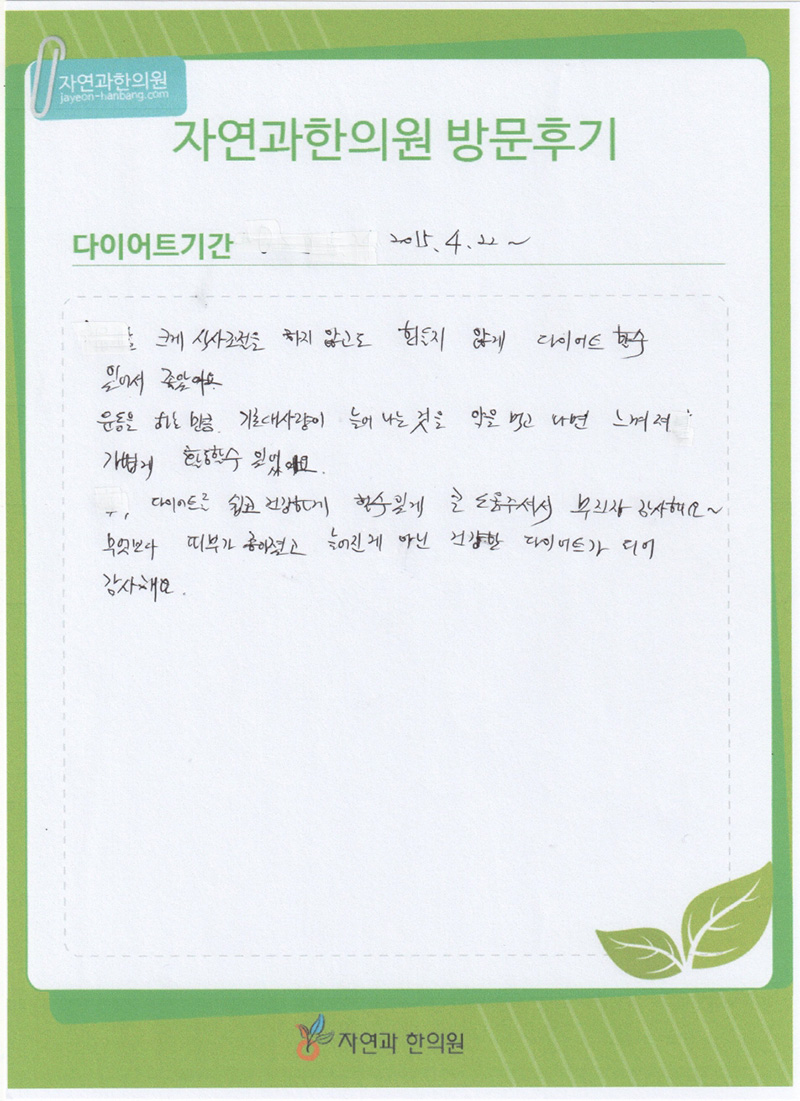 자연과한의원
jayeon-hanbang.com
자연과한의원 방문후기
다이어트기간 2015. 4. 22 ~
크게 식사조절을 하지 않고도 힘들지 않게 다이어트 할수
있어서 좋았어요
운동을 하는 만큼 기초대사량이 늘어 나는 것을 약을 먹고 나면 느껴져
가볍게 활동할수 있었어요.
다이어트를 쉽고 건강하게 할수있게 큰 도움주셔서 무지장 감사해요~
무엇보다 피부가 좋아졌고 늘어진게 아닌 건강한 다이어트가 되어
감사해요.
자연과 한의원